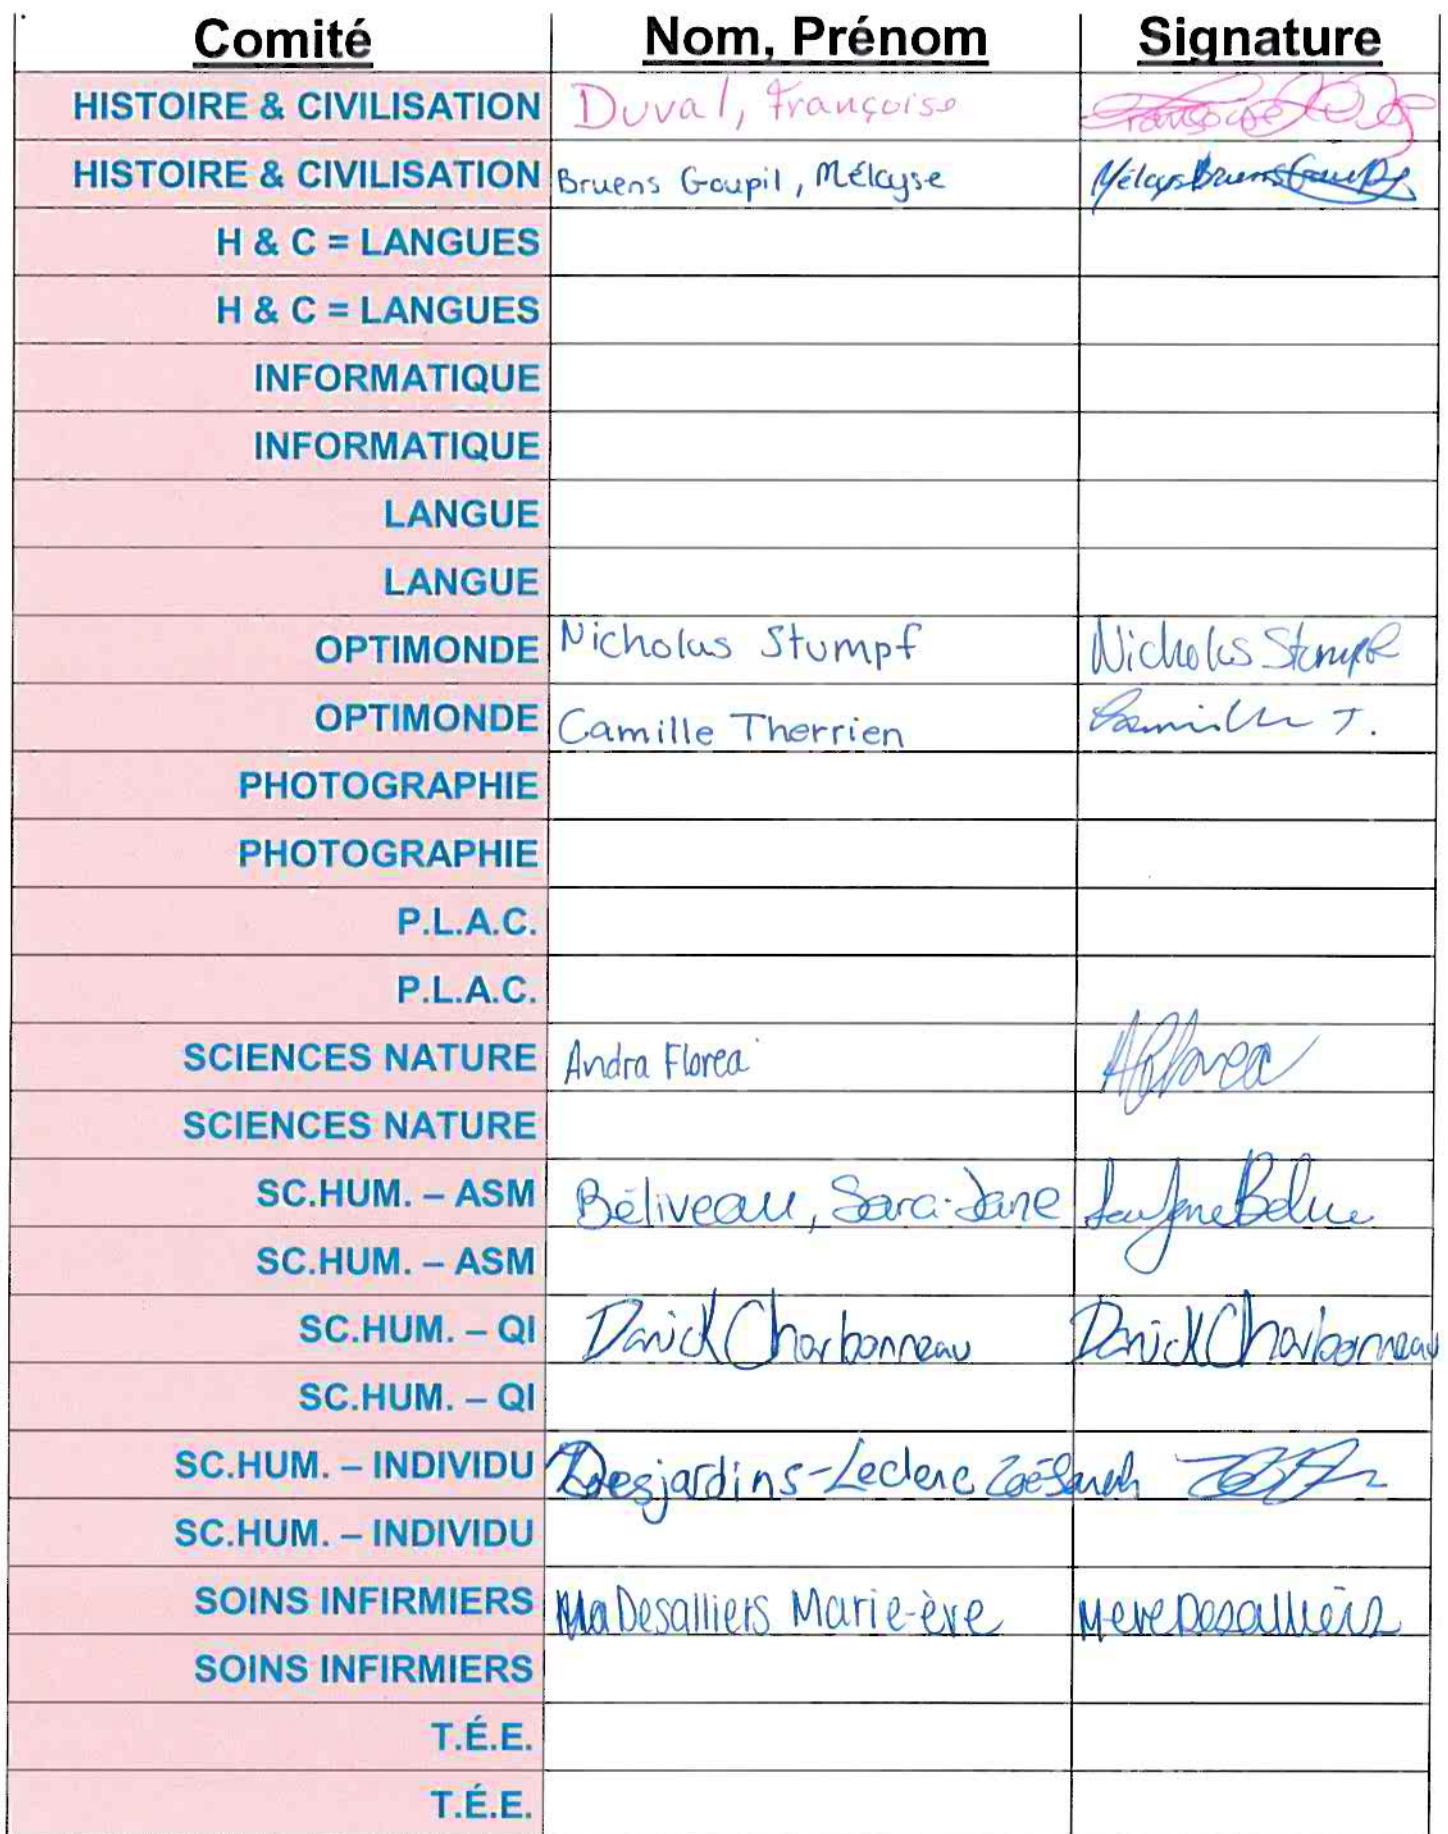 Comité Nom, Prénom Signature
HISTOIRE & CIVILISATION Duval, Françoise Françoise
HISTOIRE & CIVILISATION Bruens Goupil, Mélayse Mélays Bruens Goupil
H & C = LANGUES
H & C = LANGUES
INFORMATIQUE
INFORMATIQUE
LANGUE
LANGUE
OPTIMONDE Nicholas Stumpf Nicholas Stumpf
OPTIMONDE Camille Therrien Camille T.
PHOTOGRAPHIE
PHOTOGRAPHIE
P.L.A.C.
P.L.A.C.
SCIENCES NATURE Andra Florea AFlorea
SCIENCES NATURE
SC.HUM. – ASM Béliveau, Sara-Jane
SC.HUM. – ASM
SC.HUM. – QI Danick Charbonneau Danick Charbonneau
SC.HUM. – QI
SC.HUM. – INDIVIDU Desjardins-Leclerc Zoé-Sarah
SC.HUM. – INDIVIDU
SOINS INFIRMIERS Desalliers Marie-ève M-eve Desalliers
SOINS INFIRMIERS
T.É.E.
T.É.E.